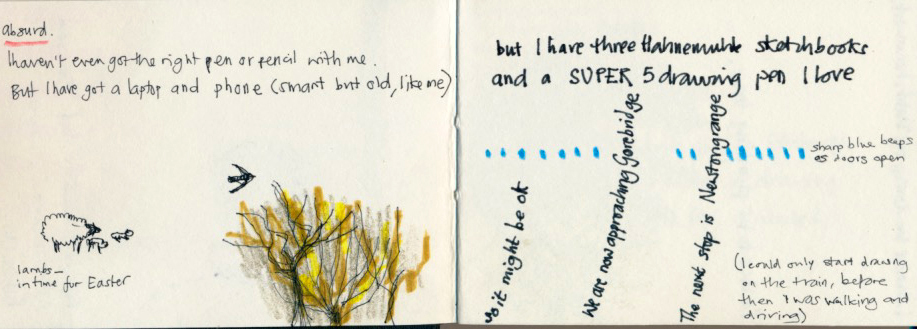 absurd.
I haven't even got the right pen or pencil with me.
But I have got a laptop and phone (smart but old, like me)
lambs –
in time for Easter
but I have three Hahnemuhle sketchbooks
and a SUPER 5 drawing pen I love
sharp blue beeps
as doors open
so it might be ok
We are now approaching Gorebridge
The next stop is Newtongrange
(I could only start drawing
on the train, before
then I was walking and
driving)